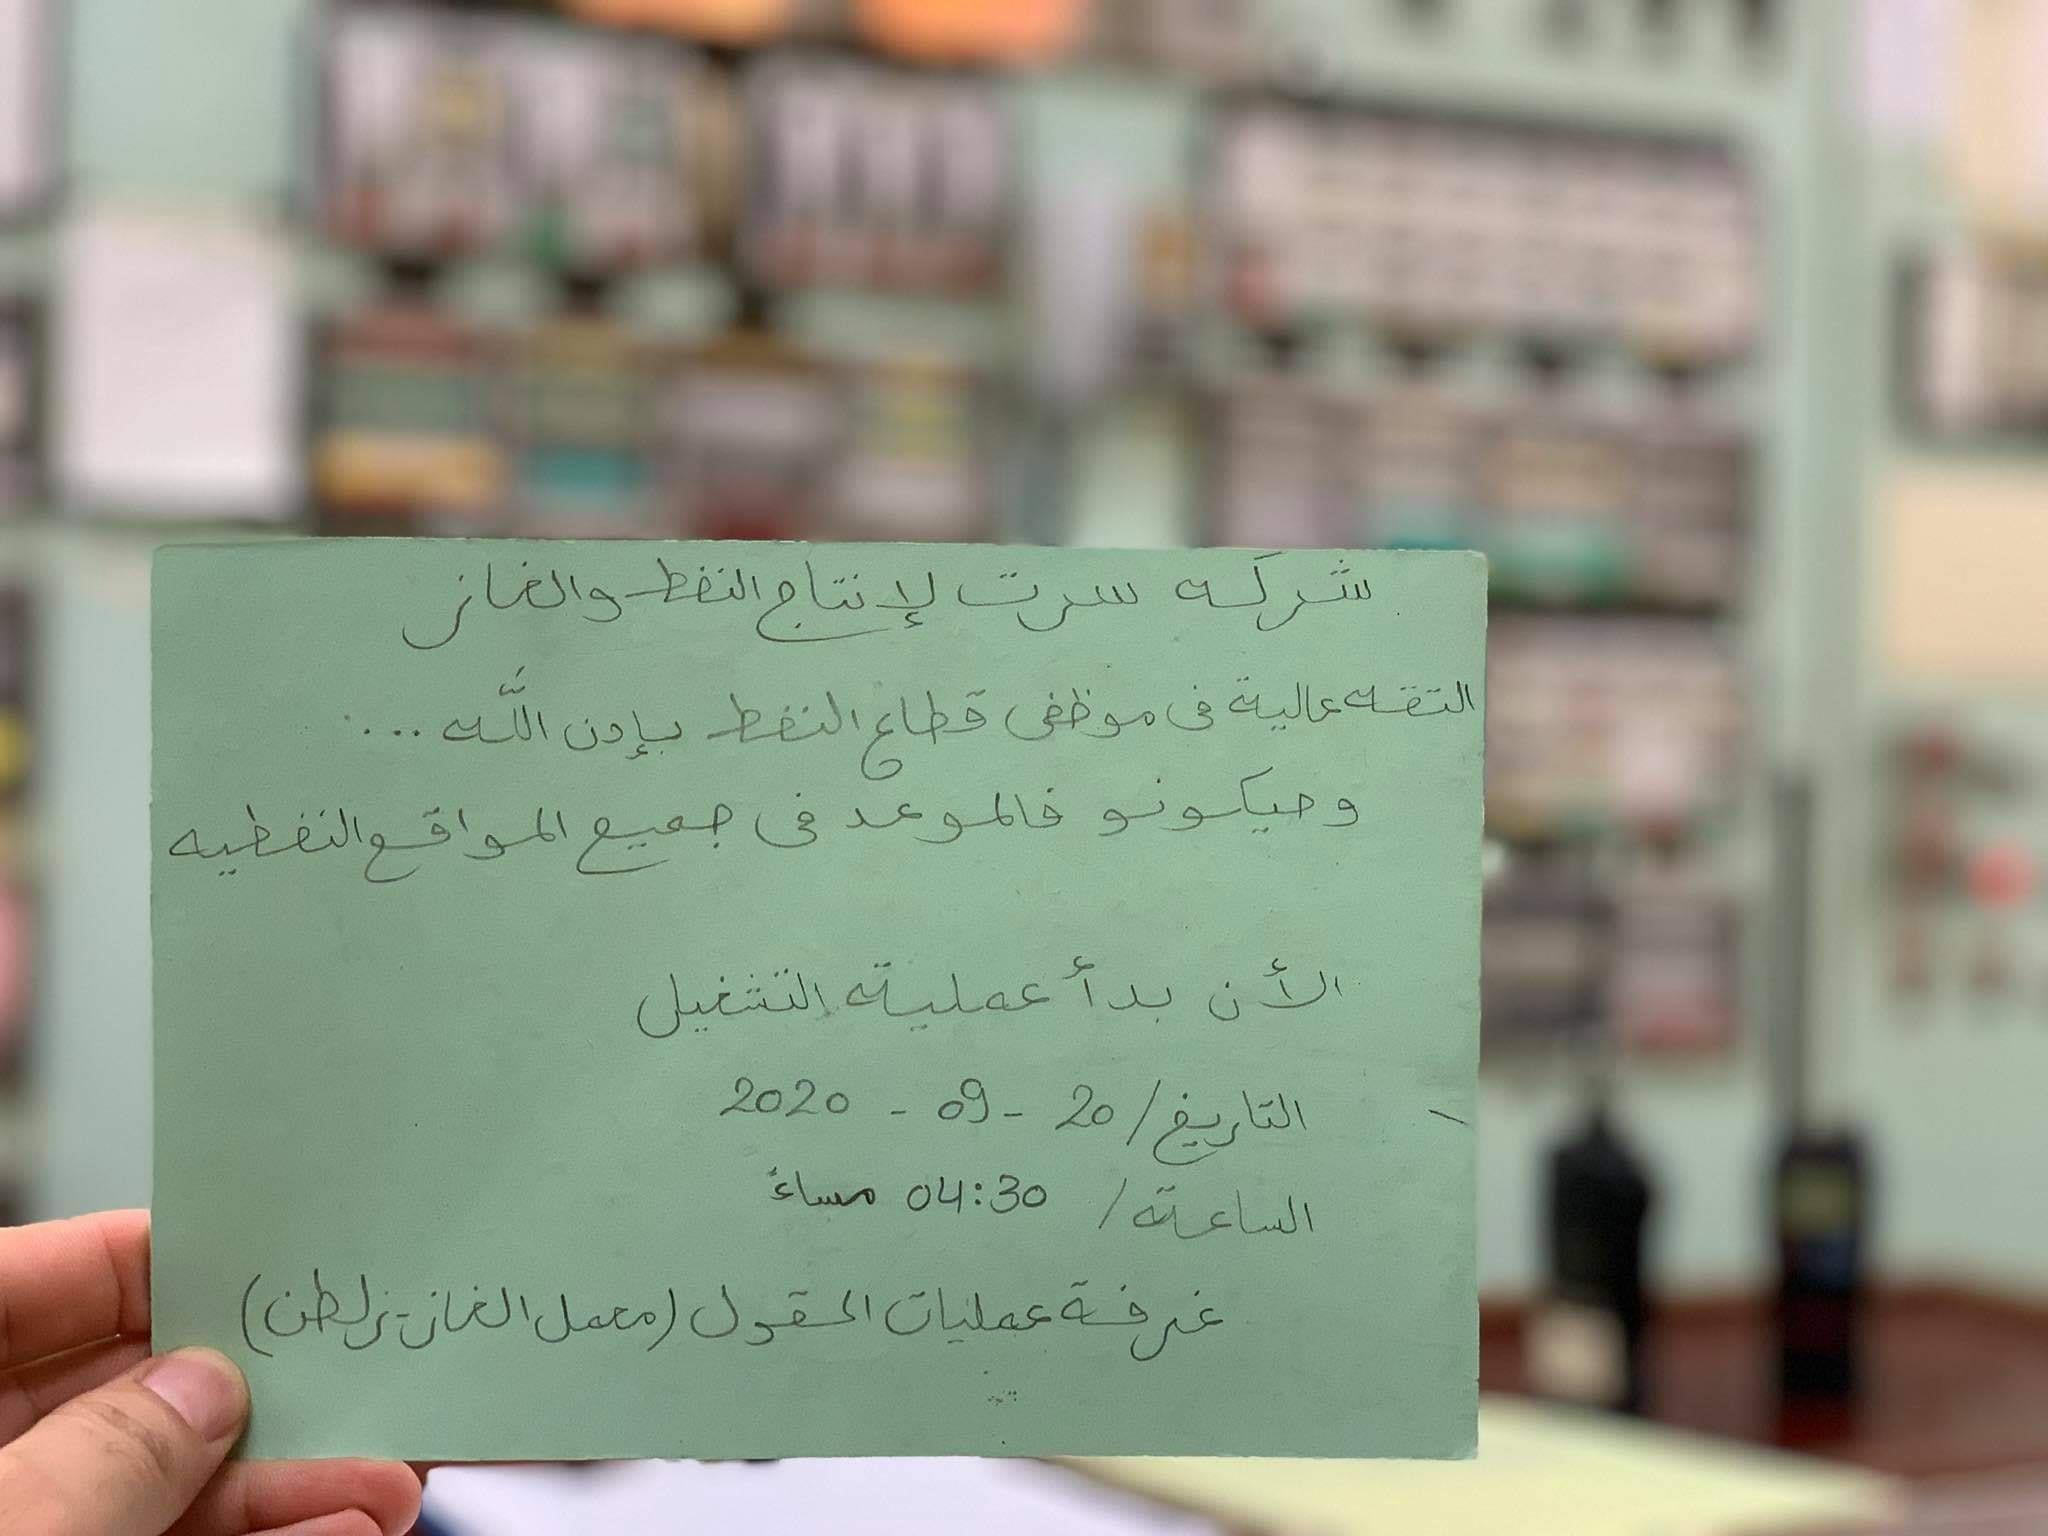 شركه سرت لإنتاج النفط والغاز
التقه عالية فى موظفى قطاع النفط بإدن اللّه ...
وحيكونو فالموعد فى جميع المواقع النفطيه
الأن بدأ عملية التشغيل
التاريخ/ 20 - 09 - 2020
الساعة/ 04:30 مساءً
غرفة عمليات الحقول (معمل الغاز-زلطن)